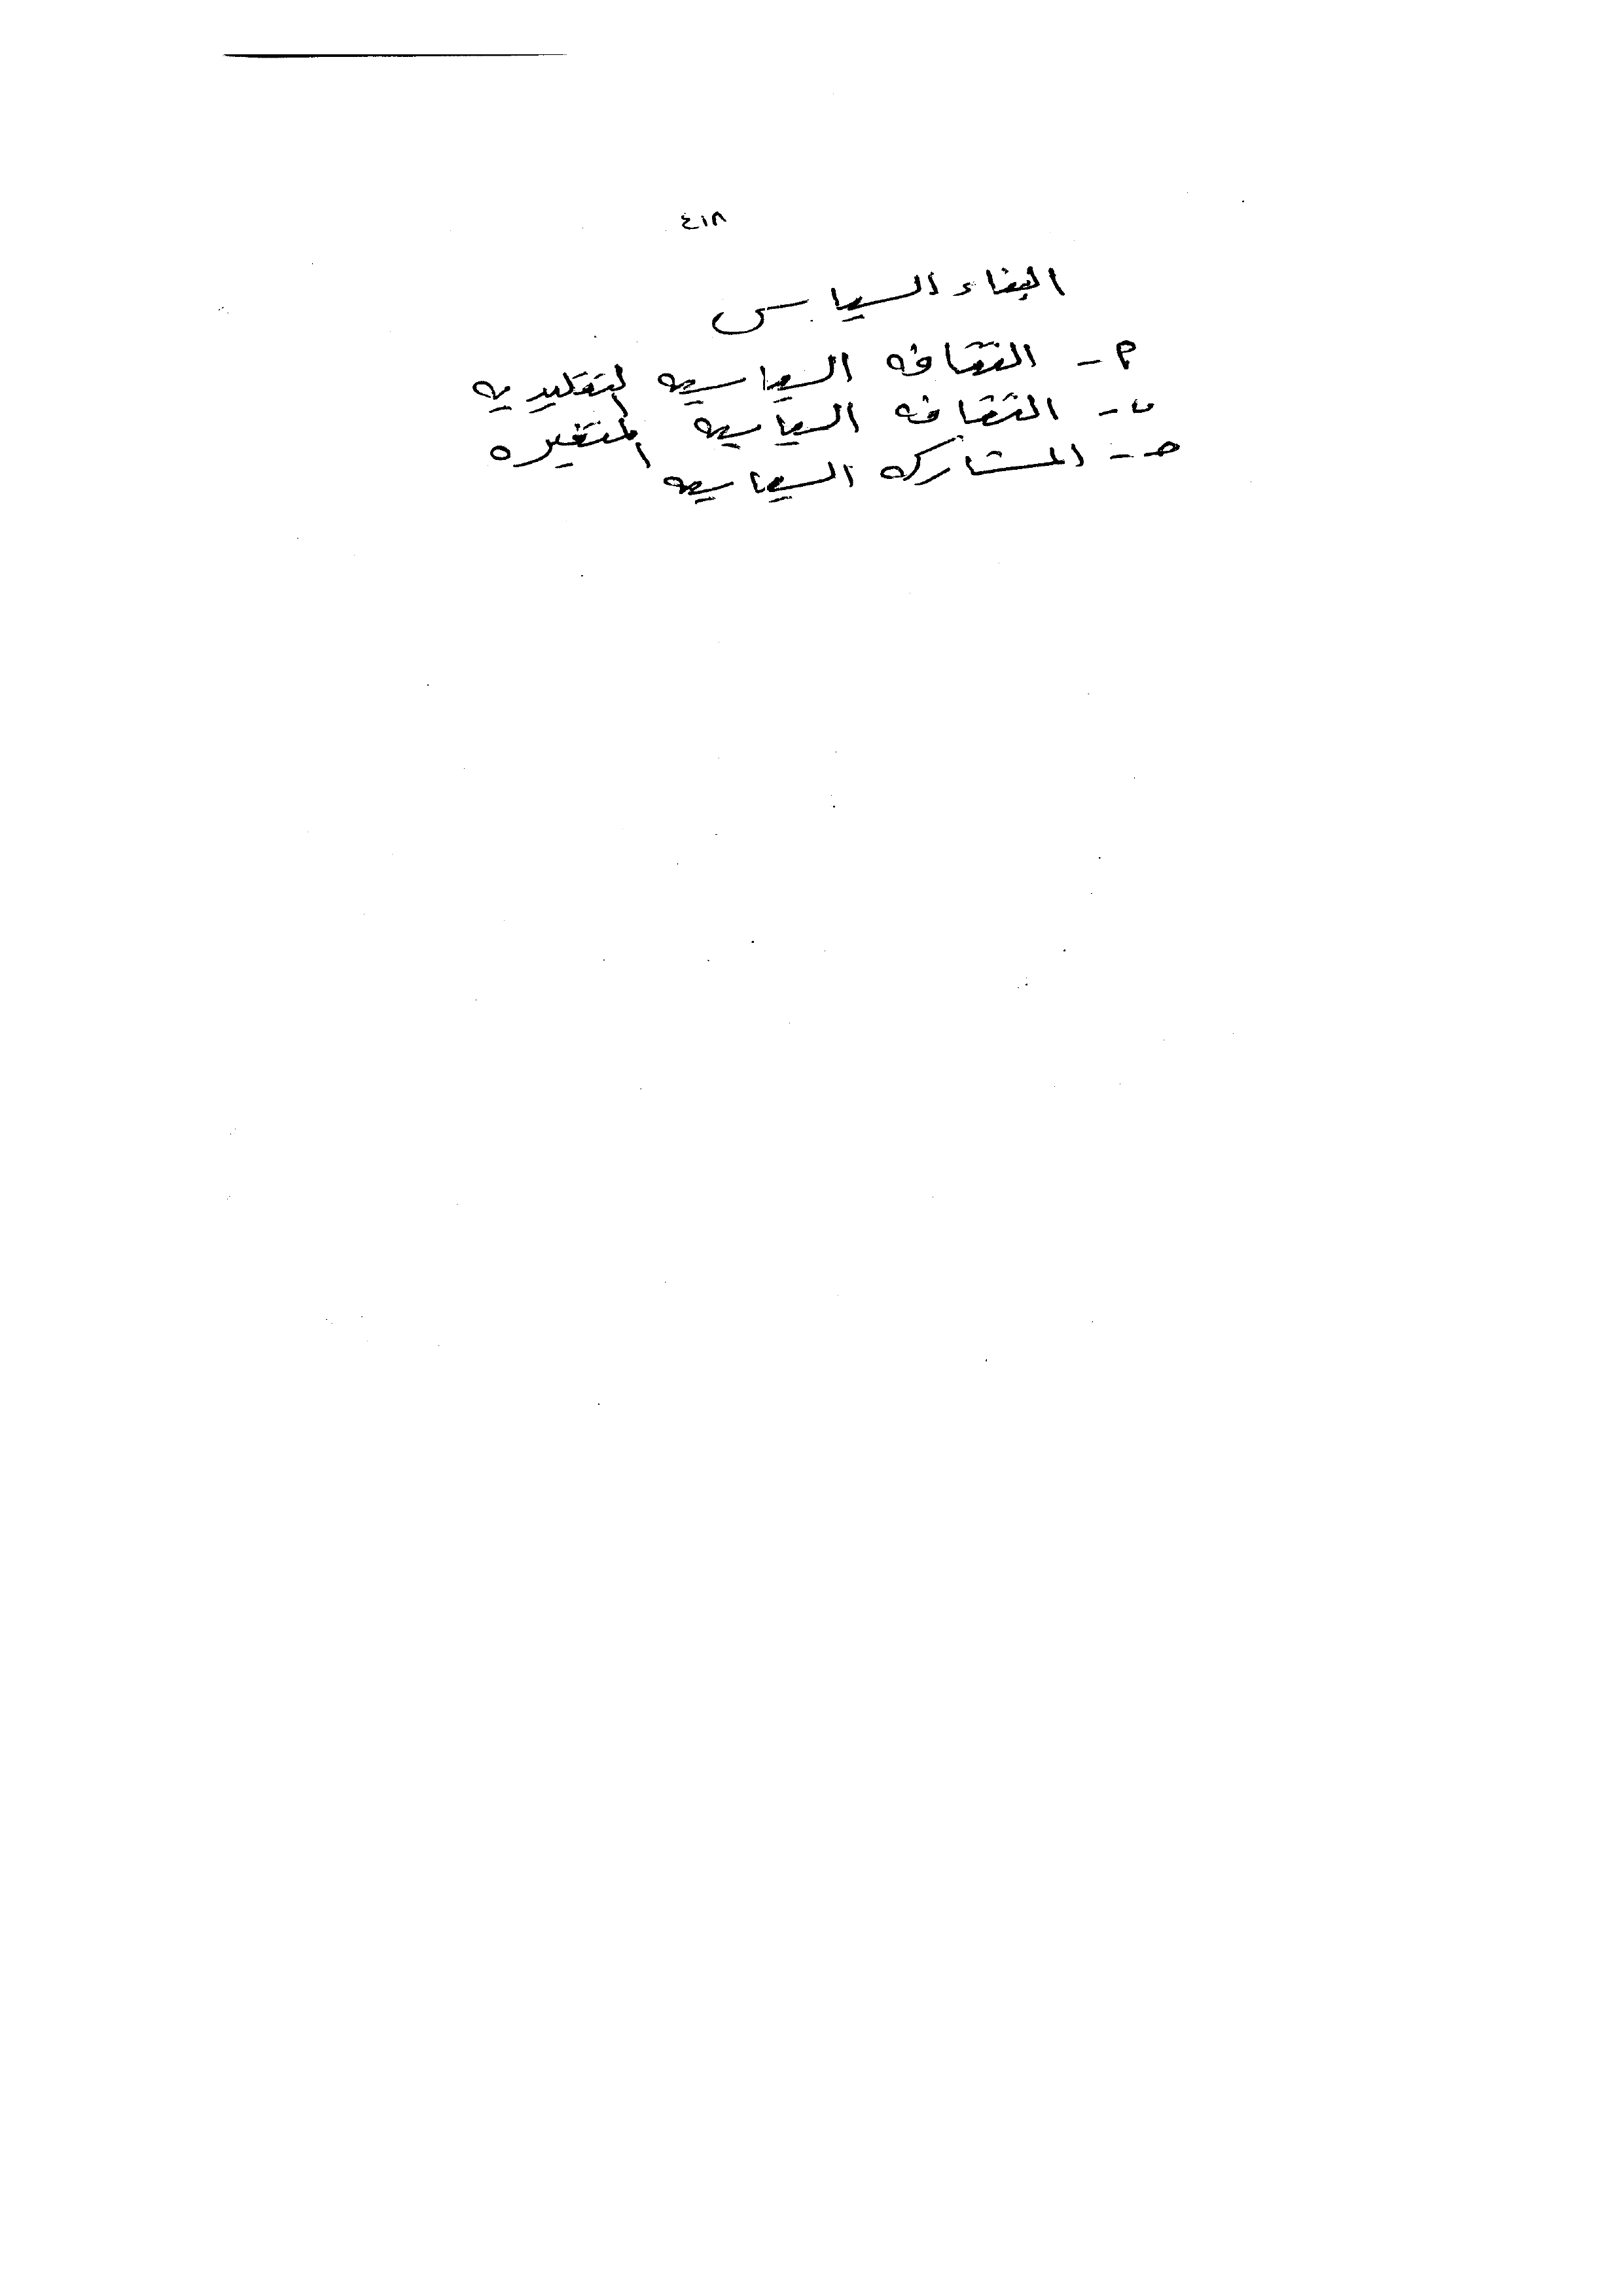 ٤١٨
البناء السياسى
أ - الثقافه السياسيه التقليديه
ب - الثقافه السياسيه المتغيره
حـ - المشاركه السياسيه